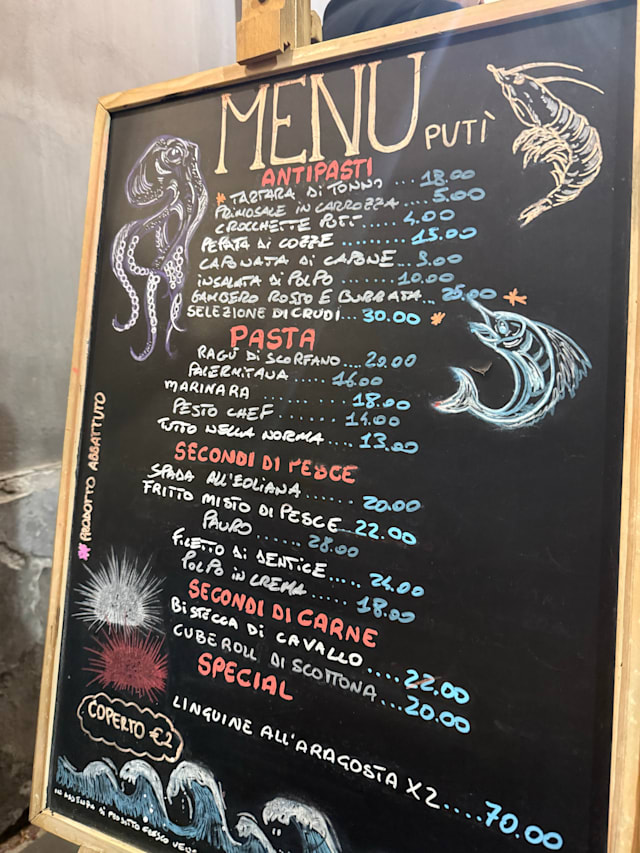 MENU PUTÌ
ANTIPASTI
* TARTARA DI TONNO... 18.00
PRIMOSALE IN CARROZZA ... 5.00
CROCCHETTE PUTÌ ... 4.00
PEPATA DI COZZE ........ 15.00
CAPONATA DI CAPONE ... 9.00
INSALATA DI POLPO ...... 10.00
GAMBERO ROSSO E BURRATA... 25.00 *
SELEZIONE DI CRUDI... 30.00 *
PASTA
RAGÙ DI SCORFANO.... 20.00
PALERMITANA ..... 16.00
MARINARA ......... 18.00
PESTO CHEF ....... 14.00
TUTTO NELLA NORMA.... 13.00
SECONDI DI PESCE
SPADA ALL'EOLIANA....... 20.00
FRITTO MISTO DI PESCE 22.00
PAURO ....... 28.00
FILETTO DI DENTICE.... 24.00
POLPO IN CREMA .... 18.00
SECONDI DI CARNE
BISTECCA DI CAVALLO .... 22.00
CUBEROLL DI SCOTTONA...20.00
SPECIAL
LINGUINE ALL'ARAGOSTA X2....70.00
* PRODOTTO ABBATTUTO
COPERTO €2
DI PRODOTTO FRESCO